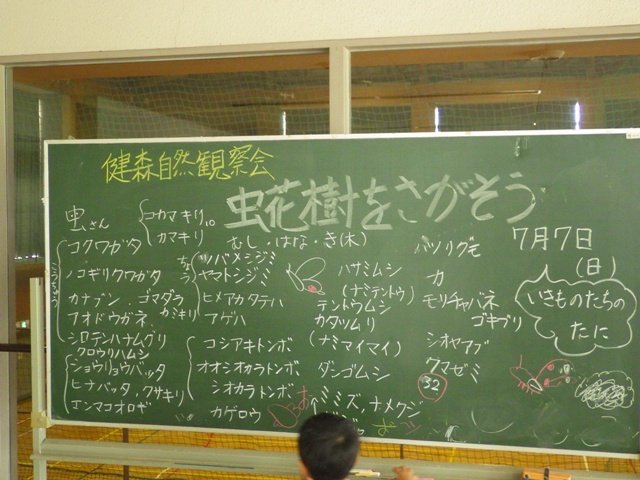 健森自然観察会
虫花樹をさがそう
むし・はな・き(木)
7月7日
(日)
いきものたちの
たに
虫さん
コカマキリ
カマキリ
コクワガタ
ノコギリクワガタ
カナブン、ゴマダラ
カミキリ
アオドウガネ
シロテンハナムグリ
クロウリハムシ
ショウリョウバッタ
ヒナバッタ、クサキリ
エンマコオロギ
こうちゅう
ちょう
ツバメシジミ
ヤマトシジミ
ヒメアカタテハ
アゲハ
コシアキトンボ
オオシオカラトンボ
シオカラトンボ
カゲロウ
ハサミムシ
(ナミテントウ)
テントウムシ
カタツムリ
(ナミマイマイ)
ダンゴムシ
ミミズ、ナメクジ
カ
モリチャバネ
ゴキブリ
シオヤアブ
クマゼミ
32